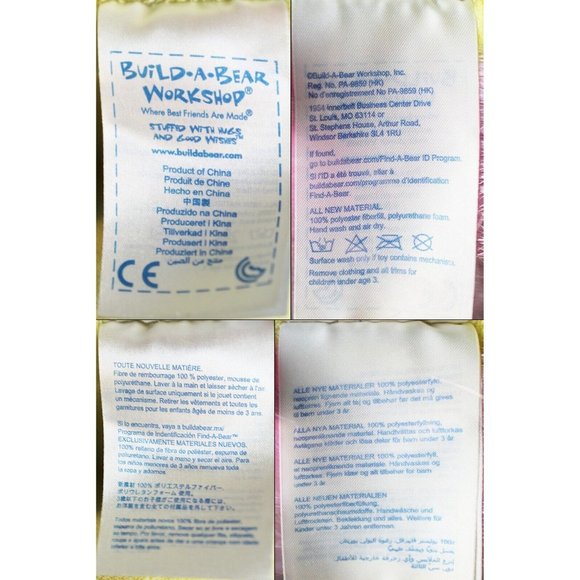 BUILD-A-BEAR
WORKSHOP®
Where Best Friends Are Made®
STUFFED WITH HUGS
AND GOOD WISHES™
www.buildabear.com
Product of China
Produit de Chine
Hecho en China
中国製
Produzido na China
Produceret i Kina
Tillverkad i Kina
Produsert i Kina
Produziert in China
منتج من الصين
CE
©Build-A-Bear Workshop, Inc.
Reg. No. PA-9859 (HK)
No d'enregistrement No PA-9859 (HK)
1954 Innerbelt Business Center Drive
St. Louis, MO 63114 or
St. Stephens House, Arthur Road,
Windsor Berkshire SL4 1RU
If found,
go to buildabear.com/Find-A-Bear ID Program.
Si l'ID a été trouvé, aller à
buildabear.com/programme d'identification
Find-A-Bear
ALL NEW MATERIAL.
100% polyester fiberfill, polyurethane foam.
Hand wash and air dry.
Surface wash only if toy contains mechanism.
Remove clothing and all trims for
children under age 3.
TOUTE NOUVELLE MATIÈRE.
Fibre de rembourrage 100 % polyester, mousse de
polyuréthane. Laver à la main et laisser sécher à l'air.
Lavage de surface uniquement si le jouet contient
un mécanisme. Retirer les vêtements et toutes les
garnitures pour les enfants âgés de moins de 3 ans.
Si lo encuentra, vaya a buildabear.mx/
Programa de Indentificación Find-A-Bear™
EXCLUSIVAMENTE MATERIALES NUEVOS.
100% relleno de fibra de poliéster, espuma de
poliuretano. Lavar a mano y secar al aire. Para
los niños menores de 3 años remueva toda
la ropa y adornos.
新素材 100% ポリエステルファイバー、
ポリウレタンフォーム 使用。
3歳以下のお子様がご使用になる際には、
Todos materiais novos 100% fibra de poliéster,
espuma de poliuretano.
ALLE NYE MATERIALER 100% polyesterfyld,
neopren lignende materiale. Håndvaskes og
lufttørres. Fjern alt tøj og tilbehør før det må gives
til børn under 3 år.
ALLA NYA MATERIAL 100% polyesterfyllning,
ett neoprenliknande material. Handtvättas och lufttorkas
Avlägsna kläder och lösa delar för barn under 3 år
ALLE NYE MATERIALER 100% polyesterfyll,
et neoprenlignende materiale. Håndvaskes og
lufttørkes. Fjern klær og alt tilbehør for barn
under 3 år
ALLE NEUEN MATERIALIEN
100% Polyesterfüllung,
Polyurethanschaumstoff. Handwäsche und
Lufttrocknen. Bekleidung und alles Weitere für
Kinder unter 3 Jahren entfernen.